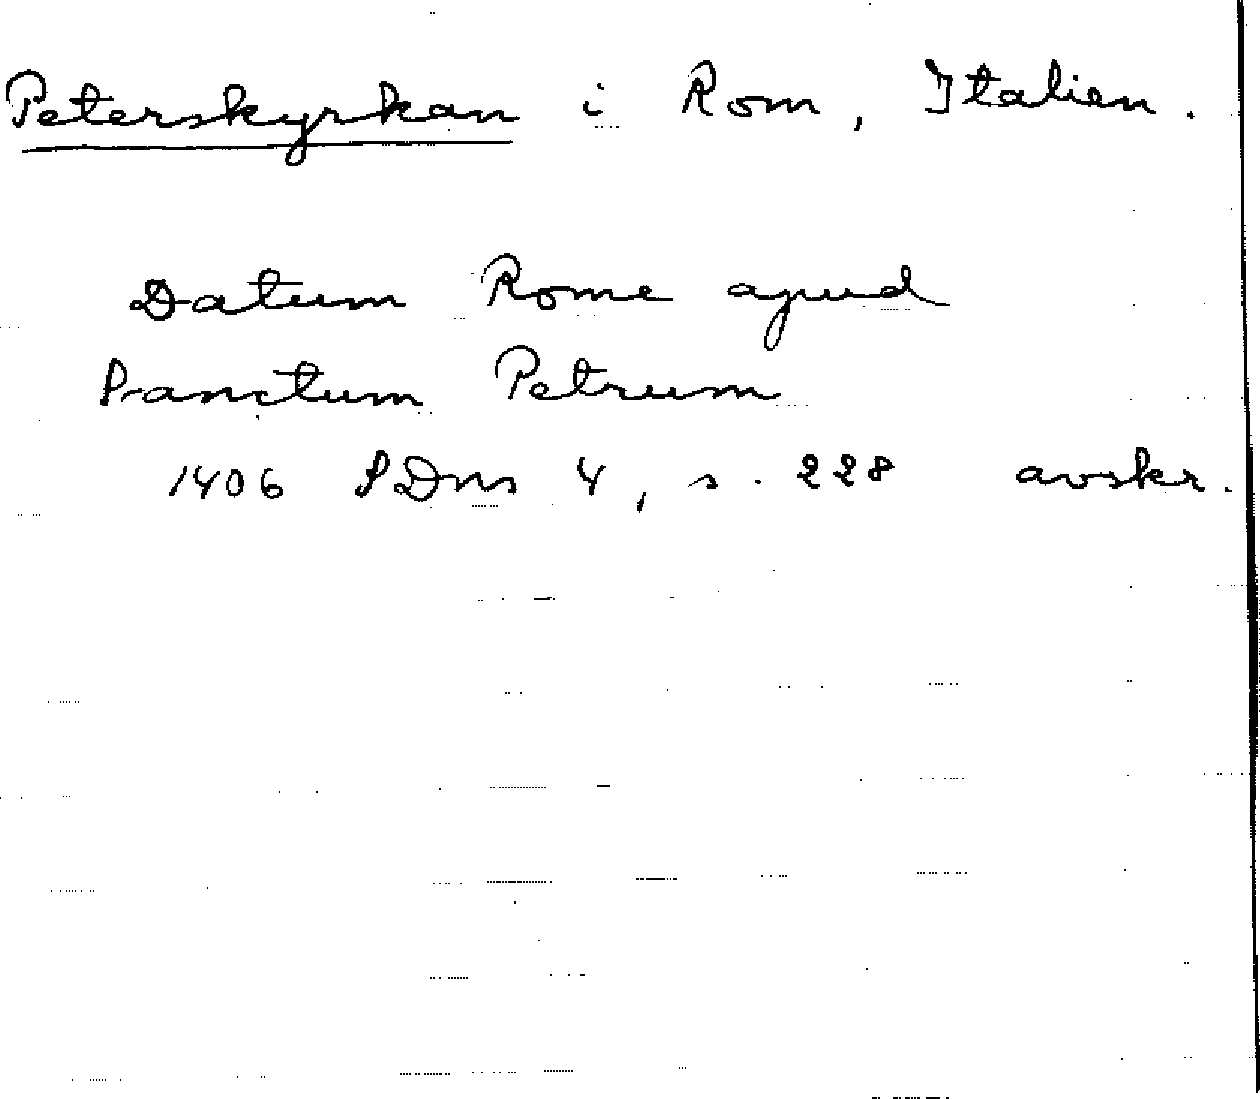 Peterskyrkan i Rom, Italien.
Datum Rome apud
Sanctum Petrum
1406 SDns 4, s. 228 avskr.